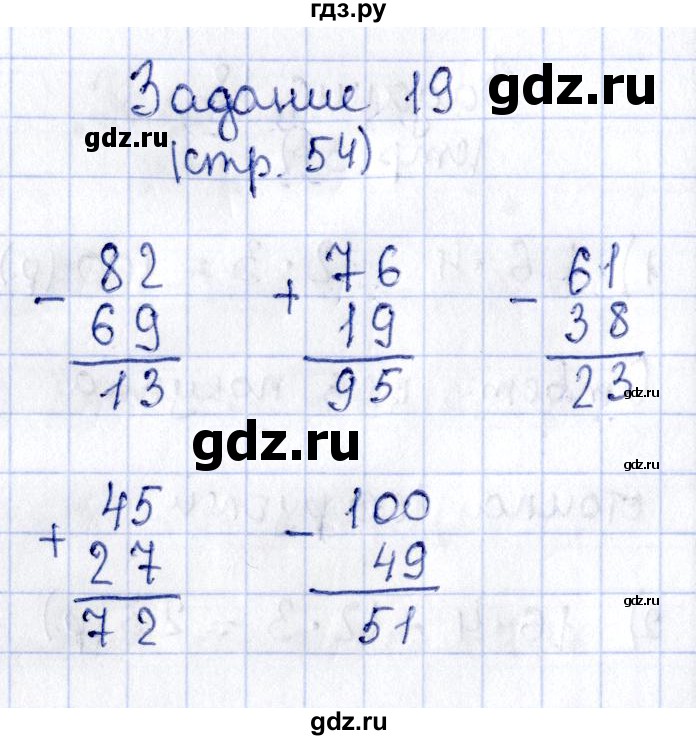 гдз.ру
Задание 19
gdz.ru
gdz.ru
(стр. 54)
- 82
69
13
+ 76
19
95
- 61
38
23
gdz.ru
gdz.ru
gdz.ru
+ 45
27
72
- 100
49
51
gdz.ru
gdz.ru